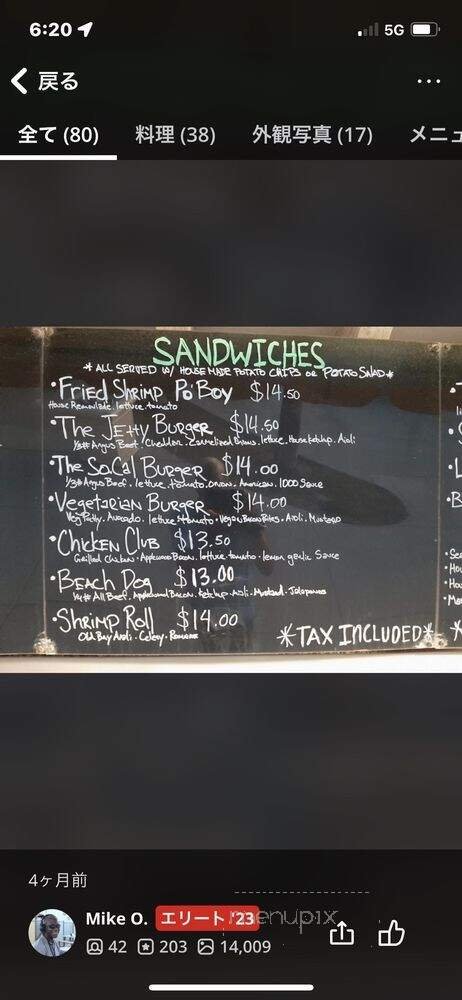 6:20
5G
戻る
全て (80) 料理 (38) 外観写真 (17) メニュ
SANDWICHES
*ALL SERVED W/ HOUSE MADE POTATO CHIPS OR POTATO SALAD*
•Fried Shrimp Po'Boy $14.50
House Remoulade. lettuce. tomato
•The Jetty Burger $14.50
1/3# Angus Beef. Cheddar. Caramelized Onions. lettuce. House Ketchup. Aioli
•The SoCal Burger $14.00
1/3# Angus Beef. lettuce. tomato. Onion. American. 1000 Sauce
•Vegetarian Burger $14.00
Veg Patty. Avocado. lettuce. tomato. Vegan Bacon Bites. Aioli. Mustard
•Chicken Club $13.50
Grilled Chicken. Applewood Bacon. lettuce. tomato. lemon garlic Sauce
•Beach Dog $13.00
1/4# All Beef. Applewood Bacon. Ketchup. Aioli. Mustard. Jalapenos
•Shrimp Roll $14.00
Old Bay Aioli. Celery. Romaine
*TAX INCLUDED*
4ヶ月前
Mike O. エリート '23
menupix
42 203 14,009